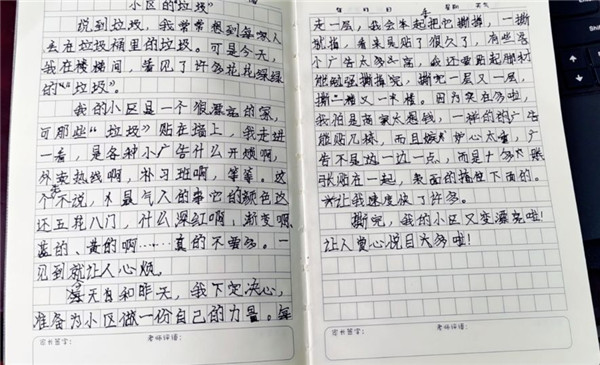 小区的"垃圾"
说到垃圾，我常常想到每家人
丢在垃圾桶里的垃圾。可是今天，
我在楼梯间，看见了许多花花绿绿
的"垃圾"。
我的小区是一个很漂亮的家，
可那些"垃圾"贴在墙上，我走进
一看，是各种小广告什么开锁啊，
外卖热线啊，补习班啊，等等。这
个不说，最气人的事它的颜色这
还五花八门，什么深红啊，渐变啊，
蓝的、黄的啊……真的不要多。一
见到就让人心烦。
每天看和昨天，我下定决心，
准备为小区做一份自己的力量。每
家长签字：
老师评语：
年 月 日 星期 天气
走一层，我会拿起把它撕掉，一撕
就掉，看来是贴了很久了，有些
个广告太多太高，我还要踮起脚才
能勉强撕掉完，撕完一层又一层，
撕一幢又一幢。因为实在多啦，
我怕是商家太想钱，一样的的广告
能贴几栋，而且嫉妒心太重，广
告不是这一边一点，而是十多张
张贴在一起，表面的撞住下面的。
让我速度快了许多。
撕完，我的小区又变漂亮啦！
让人赏心悦目太多啦！
家长签字：
老师评语：